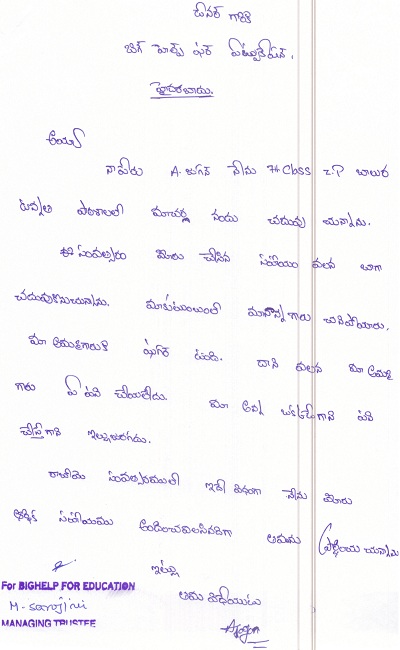 డోనర్ గారికి
బిగ్ హెల్ప్ ఫర్ ఎడ్యుకేషన్,
హైదరాబాదు.
అయ్యా
నాపేరు A. జగన్ నేను 7th Class Z.P బాలుర
ఉన్నత పాఠశాలలో మాచర్ల నందు చదువు చున్నాను.
ఈ సంవత్సరం మీరు చేసిన సహాయం వలన బాగా
చదువుకొనుచున్నాను. మాకుటుంబంలో మానాన్న గారు చనిపోయారు.
మా అమ్మగారుకి షుగర్ ఉంది. దాని వలన మా అమ్మ
గారు ఏ పని చేయలేదు. మా అన్న ఒక్కడేగాని పని
చేస్తేగాని ఇల్లుజరగదు.
రాబోయె సంవత్సరములో ఇదే విధంగా నేను మీరు
ఆర్థిక సహాయము అందించవలసినదిగా తమను ప్రార్థించు చున్నాను
ఇట్లు
తమ విధేయుడు
A.Jagan
For BIGHELP FOR EDUCATION
M. Sarojini
MANAGING TRUSTEE